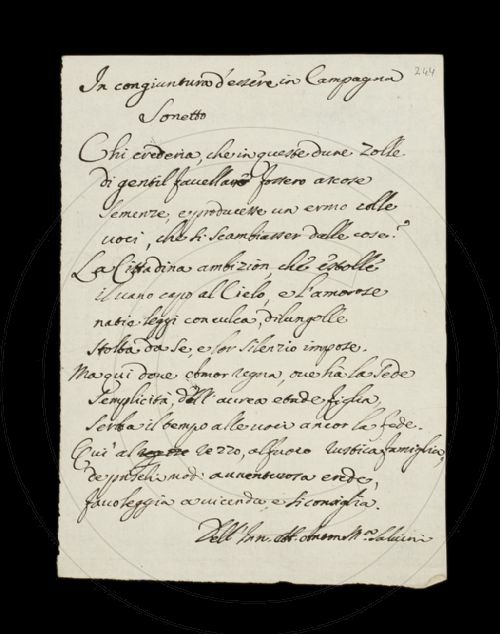 244
In congiuntura d'essere in Campagna
Sonetto
Chi crederia, che in queste dure Zolle
di gentil favellare fossero ascose
semenze, e producesse un ermo colle
voci, che si scambiasser dalle cose?
La Cittadina ambizion, che estolle
il vano capo al Cielo, e l'amorose
natie leggi conculca, dilungolle
stolta da se, e lor silenzio impose.
Ma qui dove amor regna, ove ha la sede
semplicità, dell'aurea etade figlia,
serba il tempo alle voci ancor la fede.
Qui al rezzo, al fuoco rustica famiglia,
de prischi modi avventurosa erede,
favoleggia a vicenda e si consiglia.
Dell' Anton M.a Salvini